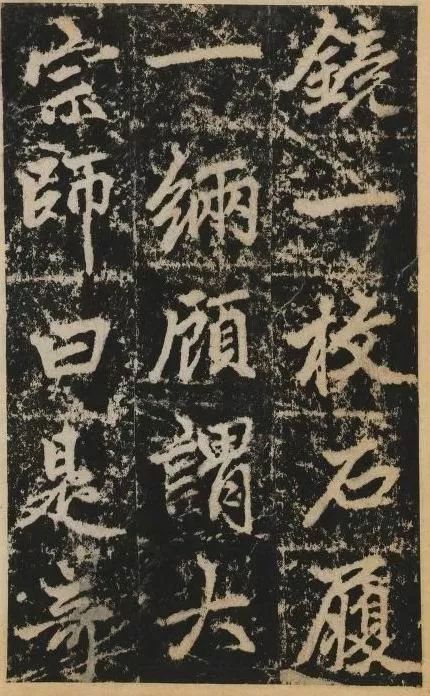 鏡一枚石履
一緉顧謂大
宗師曰是奇